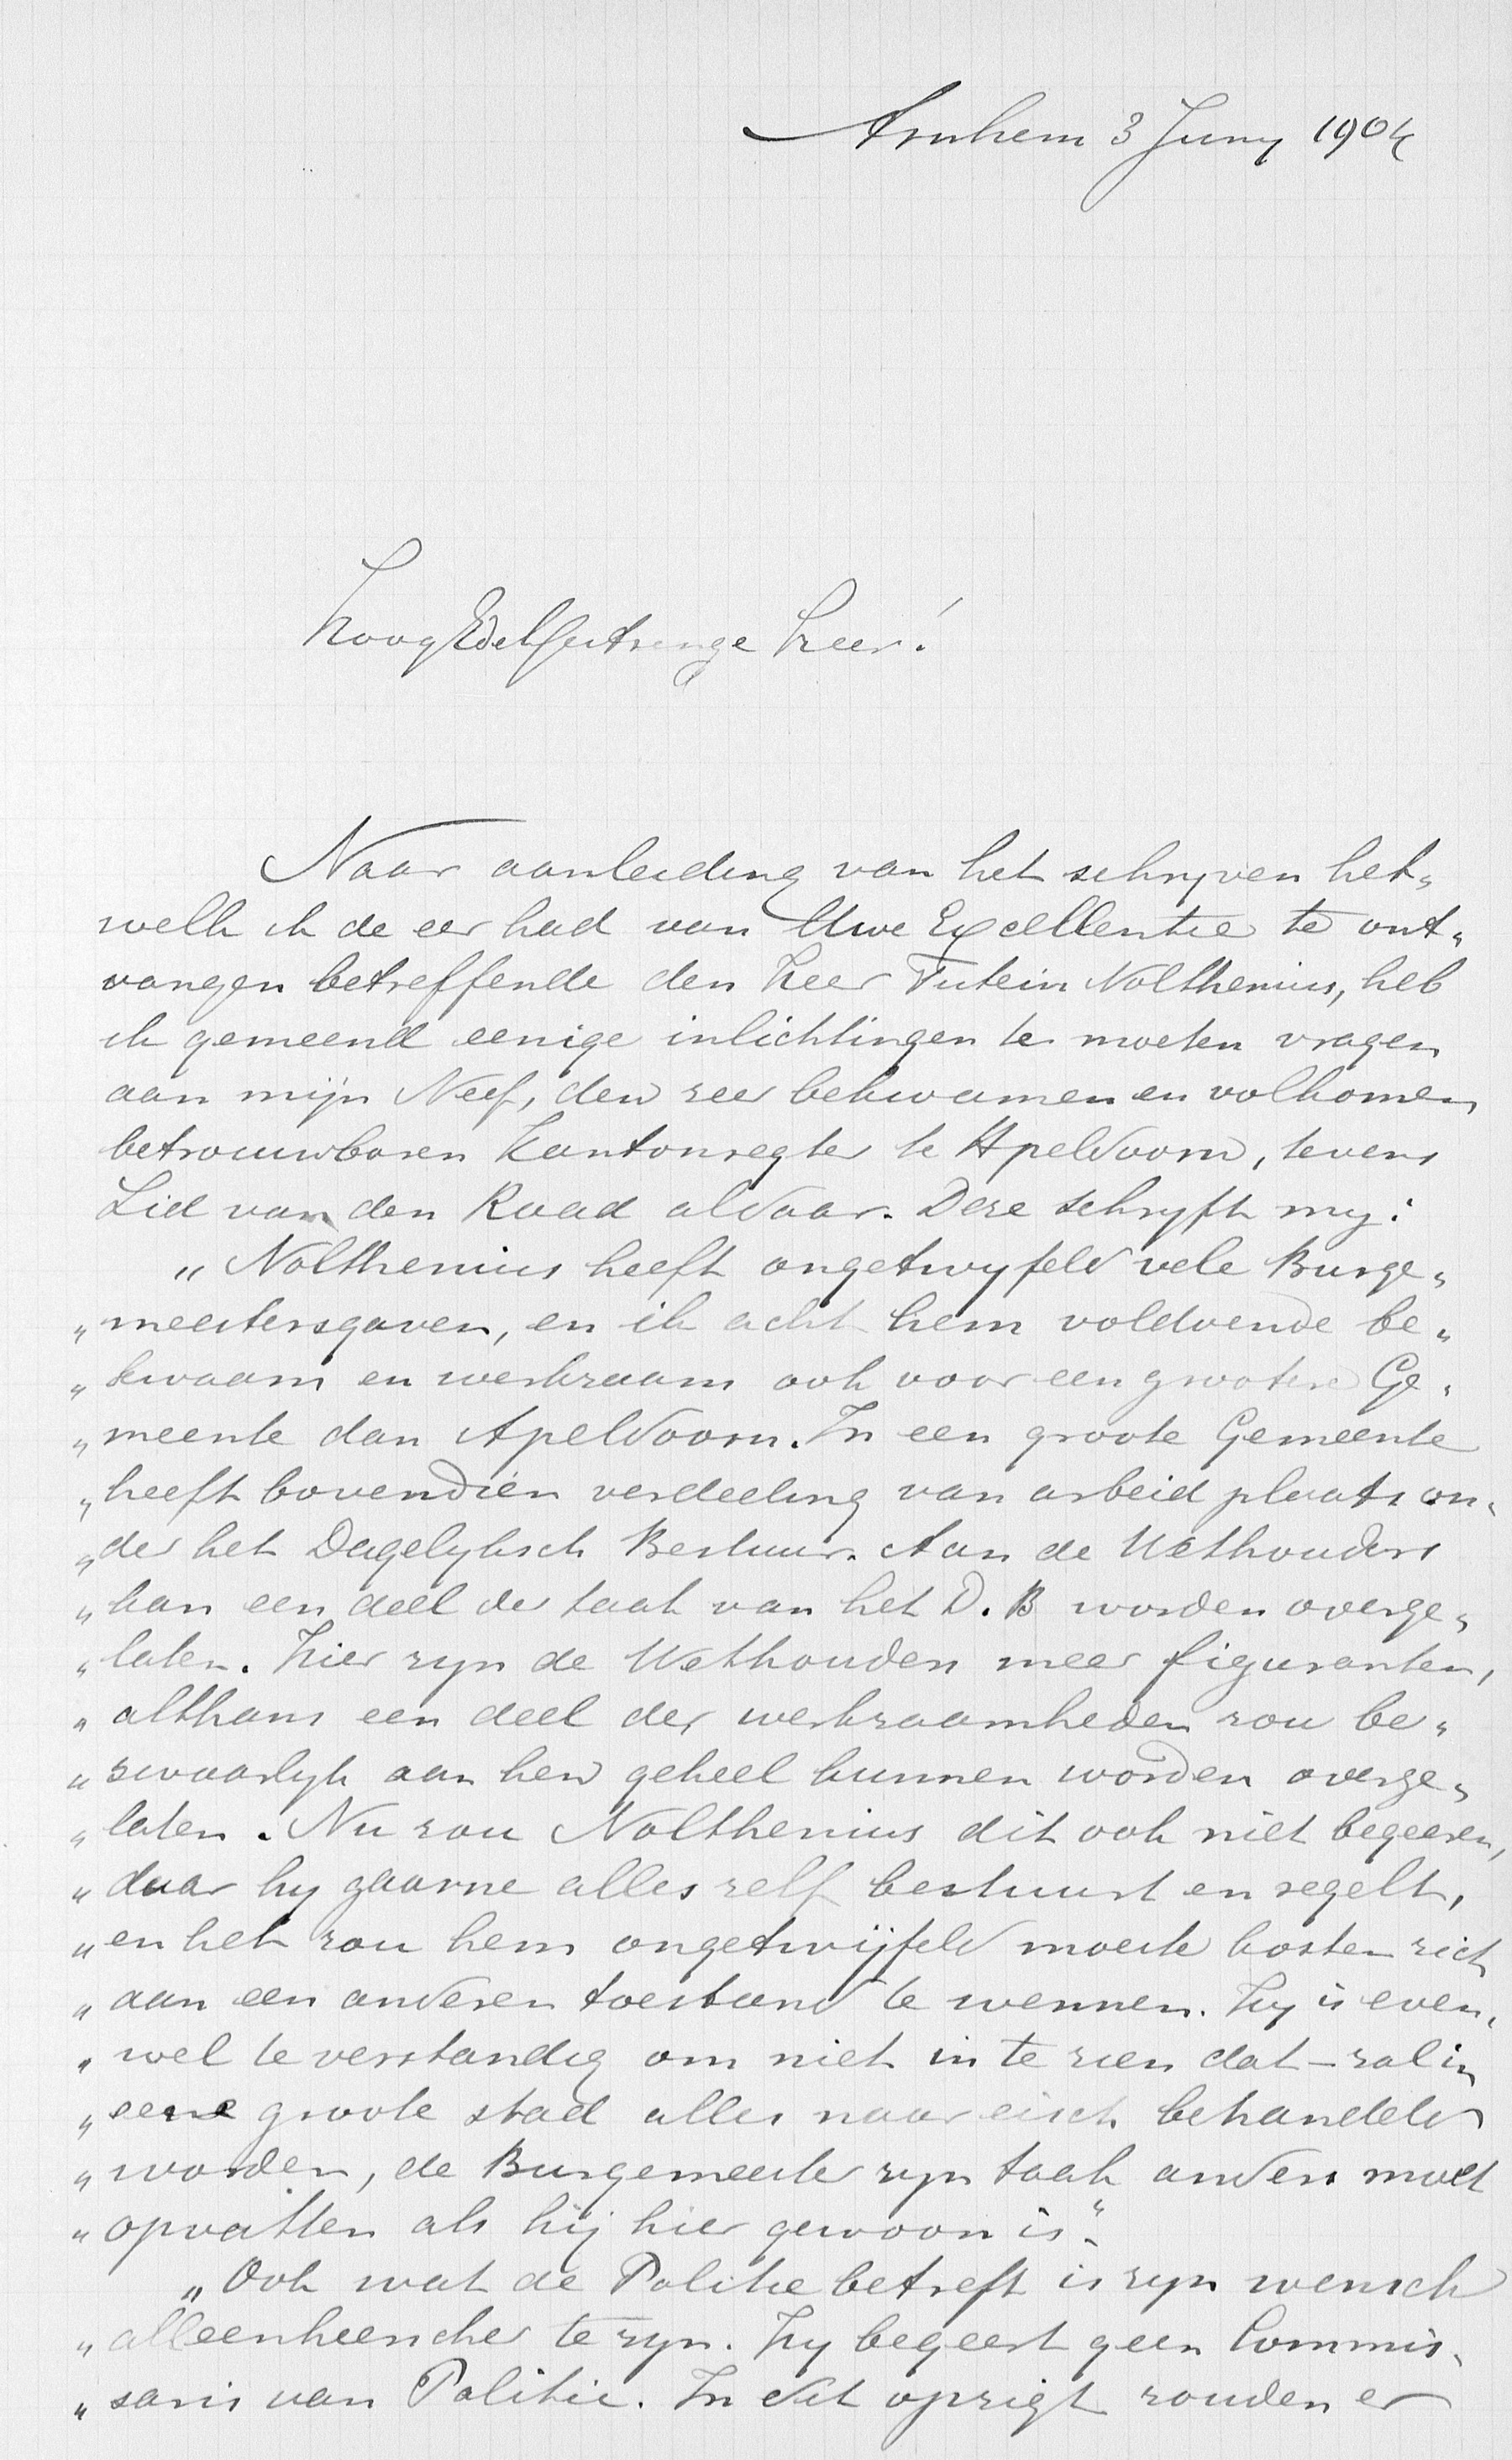 Arnhem 3 Juny 1904
HoogEdelGestrenge Heer!
Naar aanleiding van het schryven het„
welk ik de eer had van Uwe Excellentie te ont„
vangen betreffende den Heer Tutein Nolthenius, heb
ik gemeend eenige inlichtingen te moeten vragen
aan mijn Neef, den zeer bekwamen en volkomen
betrouwbaren Kantonregter te Apeldoorn, tevens
Lid van den Raad aldaar. Deze schryft my:
„Nolthenius heeft ongetwyfeld vele Burge„
„meestersgaven, en ik acht hem voldoende be„
„kwaam en werkzaam ook voor een grootere Ge„
„meente dan Apeldoorn. In een groote Gemeente
„heeft bovendien verdeeling van arbeid plaats on„
„der het Dagelyksch Bestuur. Aan de Wethouders
„kan een deel der taak van het D. B worden overge„
„laten. Hier zyn de Wethouders meer figuranten,
„althans een deel der werkzaamheden zou be„
„zwaarlyk aan hen geheel kunnen worden overge„
„laten. Nu zou Nolthenius dit ook niet begeeren,
„daar hy gaarne alles zelf bestuurt en regelt,
„en het zou hem ongetwijfeld moeite kosten zich
„aan een anderen toestand te wennen. Hy is even„
„wel te verstandig om niet in te zien dat – zal in
„eene groote stad alles naar eisch behandeld
„worden, de Burgemeester zyn taak anders moet
„opvatten als hij hier gewoon is".
„Ook wat de Politie betreft is zyn wensch
„alleenheerscher te zyn. Hy begeert geen Commis„
„saris van Politie. In dit opzigt zouden er